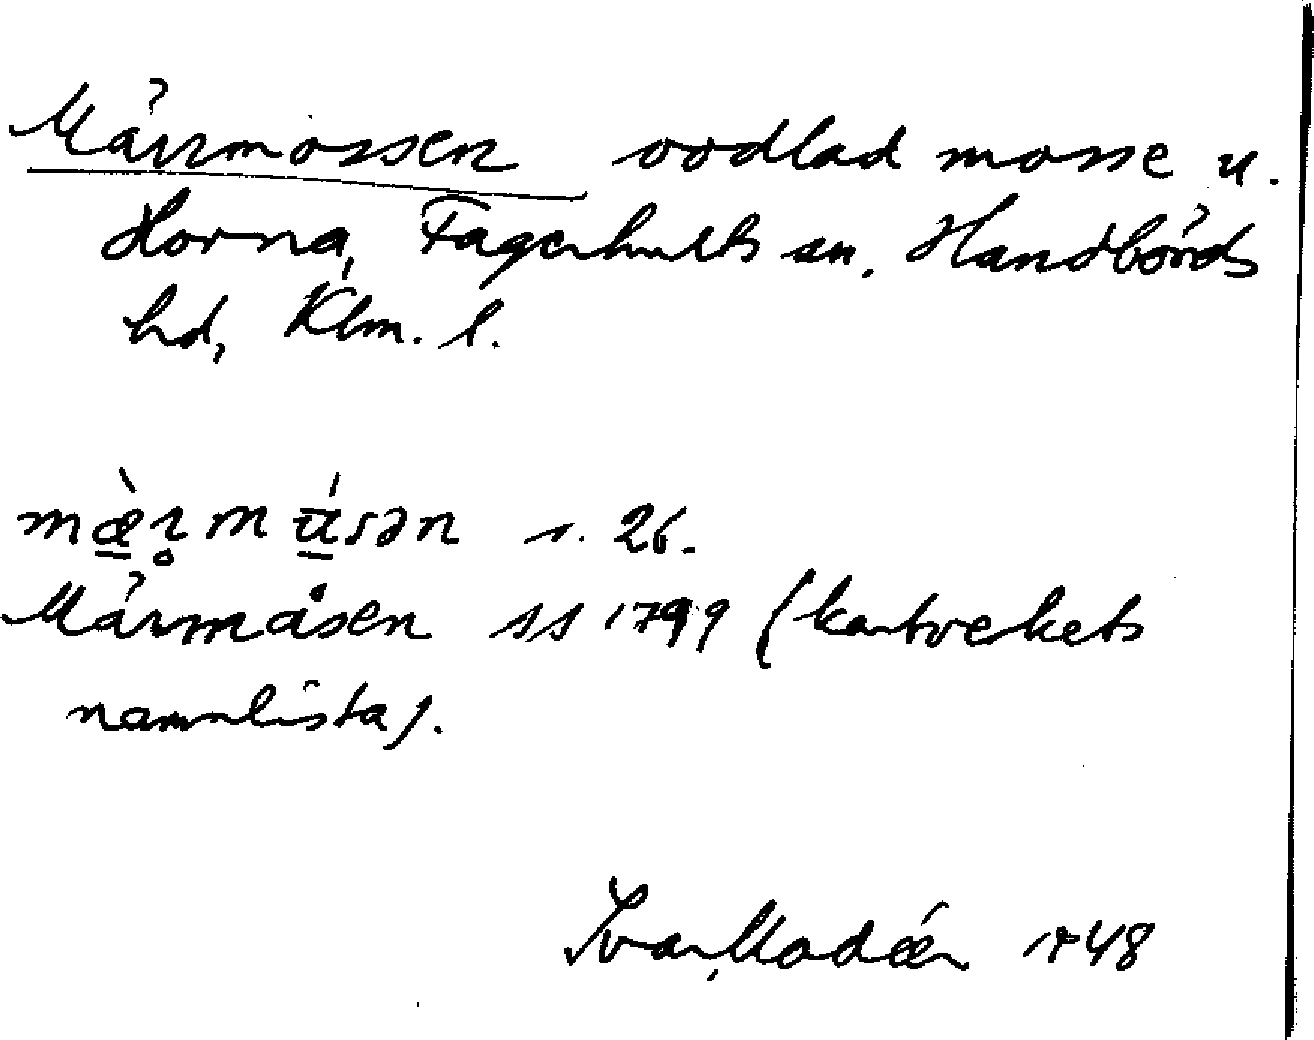 Märrmossen oodlad mosse u.
Horna, Fagerhults sn, Handbörds
hd, Klm. l.
mæ̀r̥mú̄sən s. 26.
Märmåsen ss 1799 (kartverkets
namnlista).
Ivar Modéer 1948